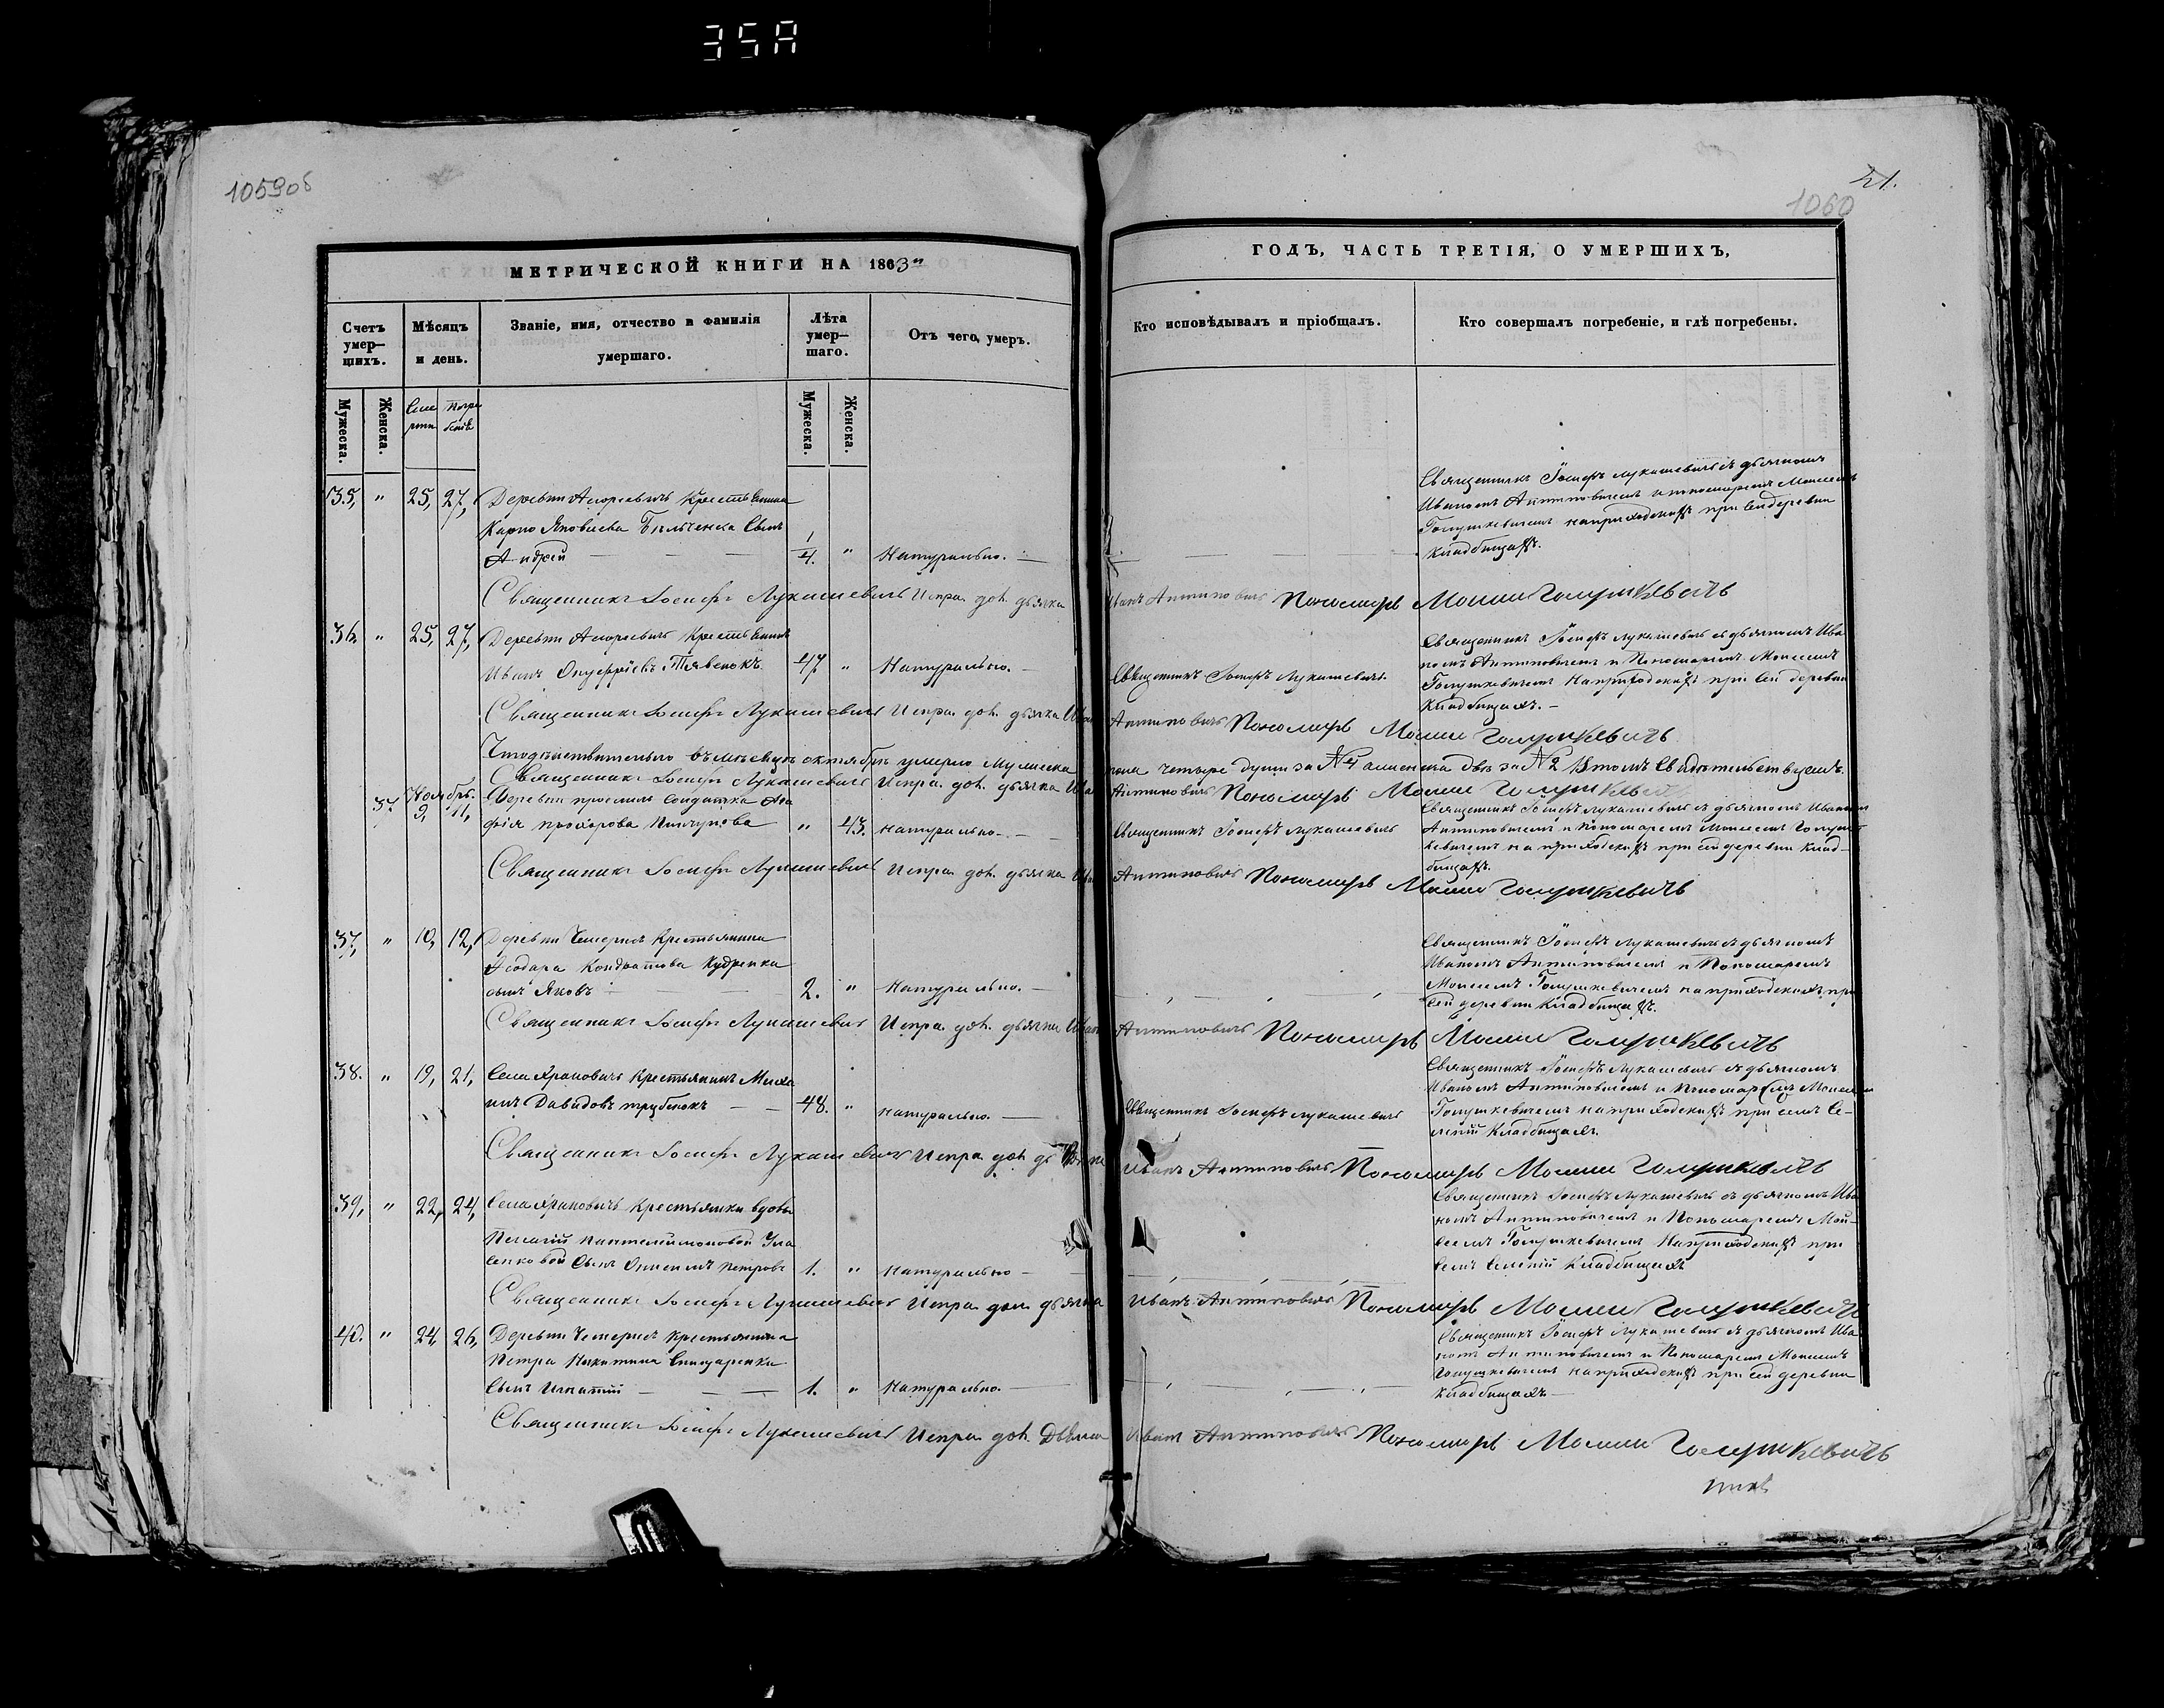 35A
1059об
21.
1060
МЕТРИЧЕСКОЙ КНИГИ НА 1863
ГОДЪ, ЧАСТЬ ТРЕТІЯ, О УМЕРШИХЪ,
Счетъ умер-шихъ.
Мѣсяцъ и день.
Званіе, имя, отчество и фамилія умершаго.
Лѣта умер-шаго.
Отъ чего, умеръ.
Кто исповѣдывалъ и пріобщалъ.
Кто совершалъ погребеніе, и гдѣ погребены.
Мужеска.
Женска.
Сме рти
Погре бенія
Мужеска.
Женска.
35, " 25, 27, Деревни Крестьянина
Карпо Яковлева Сынъ
Андрей — 1/4. " Натурально. —
Священникъ Іосифъ Лукашевичъ съ дьячкомъ
Иваномъ Антиповичемъ и пономаремъ Моисеемъ
Голушкевичемъ на приходскихъ при сей деревни
кладбищахъ.
Священникъ Іосифъ Лукашевичъ Испра. дол. дьячка Иванъ Антиповичъ Пономарь Моисей Голушкевичъ
36. " 25, 27, Деревни Крестьянинъ
Иванъ Онуфріевъ 47 " Натурально. —
Священникъ Іосифъ Лукашевичъ.
Священникъ Іосифъ Лукашевичъ съ дьячкомъ Ива
номъ Антиповичемъ и Пономаремъ Моисеемъ
Голушкевичемъ на приходскихъ при сей деревни
кладбищахъ. —
Священникъ Іосифъ Лукашевичъ Испра. дол. дьячка Иванъ Антиповичъ Пономарь Моисей Голушкевичъ
Что дѣйствительно въ мѣсяцѣ октябрѣ умерло мужеска пола четыре души за №4 а женска двѣ за №2 въ томъ свидѣтельствуемъ.
Священникъ Іосифъ Лукашевичъ Испра. дол. дьячка Иванъ Антиповичъ Пономарь Моисей Голушкевичъ
Ноябрь.
37 9, 11, Деревни солдатка
фія прохорова " 43. натурально. —
Священникъ Іосифъ Лукашевичъ
Священникъ Іосифъ Лукашевичъ съ дьячкомъ Иваномъ
Антиповичемъ и Пономаремъ Моисеемъ Голуш
кевичемъ на приходскихъ при сей деревни клад-
бищахъ.
Священникъ Іосифъ Лукашевичъ Испра. дол. дьячка Иванъ Антиповичъ Пономарь Моисей Голушкевичъ
37, " 10, 12, Деревни Крестьянина
Ѳеодора Кондратова Кудренка
сынъ Яковъ — 2. " Натурально. —
Священникъ Іосифъ Лукашевичъ съ дьячкомъ
Иваномъ Антиповичемъ и Пономаремъ
Моисеемъ Голушкевичемъ на приходскихъ при
сей деревни кладбищахъ.
Священникъ Іосифъ Лукашевичъ Испра. дол. дьячка Иванъ Антиповичъ Пономарь Моисей Голушкевичъ
38. " 19, 21, Села Храковичъ Крестьянинъ Миха
илъ Давидовъ трубенокъ — 48. " натурально. —
Священникъ Іосифъ Лукашевичъ
Священникъ Іосифъ Лукашевичъ съ дьячкомъ
Иваномъ Антиповичемъ и Пономаремъ Моисеемъ
Голушкевичемъ на приходскихъ при семъ се-
леніи Кладбищахъ.
Священникъ Іосифъ Лукашевичъ Испра. дол. дьячка Иванъ Антиповичъ Пономарь Моисей Голушкевичъ
39, " 22, 24, Села Храковичъ Крестьянки вдовы
Пелагіи Пантелиймоновой
Сынъ Онисимъ Петровъ 1. " натурально —
Священникъ Іосифъ Лукашевичъ съ дьячкомъ Ива
номъ Антиповичемъ и Пономаремъ Мои-
сеемъ Голушкевичемъ на приходскихъ при
семъ селеніи Кладбищахъ
Священникъ Іосифъ Лукашевичъ Испра. дол. дьячка Иванъ Антиповичъ Пономарь Моисей Голушкевичъ
40. " 24, 26, Деревни Крестьянина
Петра Никитина
Сынъ Игнатій — 1. " Натурально. —
Священникъ Іосифъ Лукашевичъ съ дьячкомъ Ива
номъ Антиповичемъ и Пономаремъ Моисеемъ
Голушкевичемъ на приходскихъ при сей деревни
кладбищахъ —
Священникъ Іосифъ Лукашевичъ Испра. дол. Дьячка Иванъ Антиповичъ Пономарь Моисей Голушкевичъ